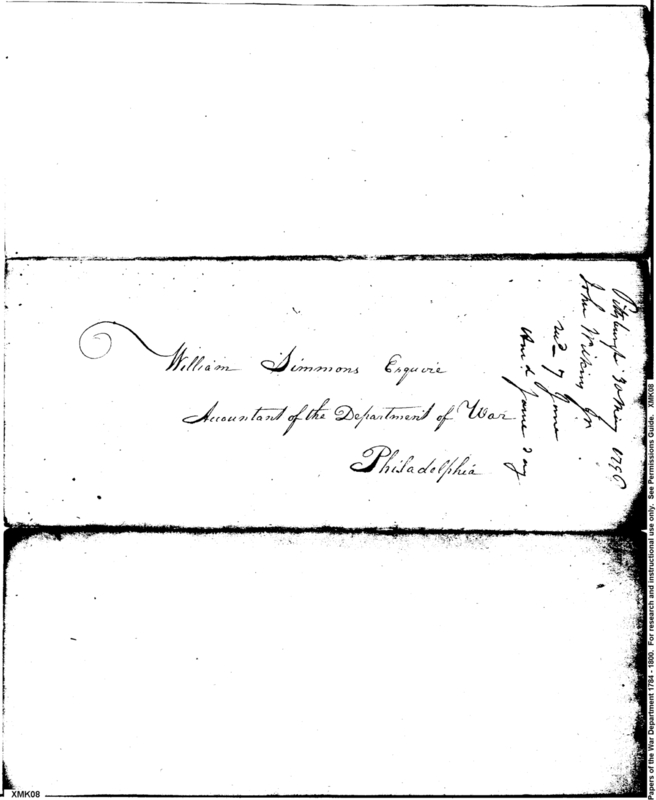 William Simmons Esquire
Accountant of the Department of War
Philadelphia
Pittsburgh 30 May 1796
John Wilkins Jr
recd 7 June
Ansd same day
Papers of the War Department 1784 - 1800. For research and instructional use only. See Permissions Guide. XMK08
XMK08